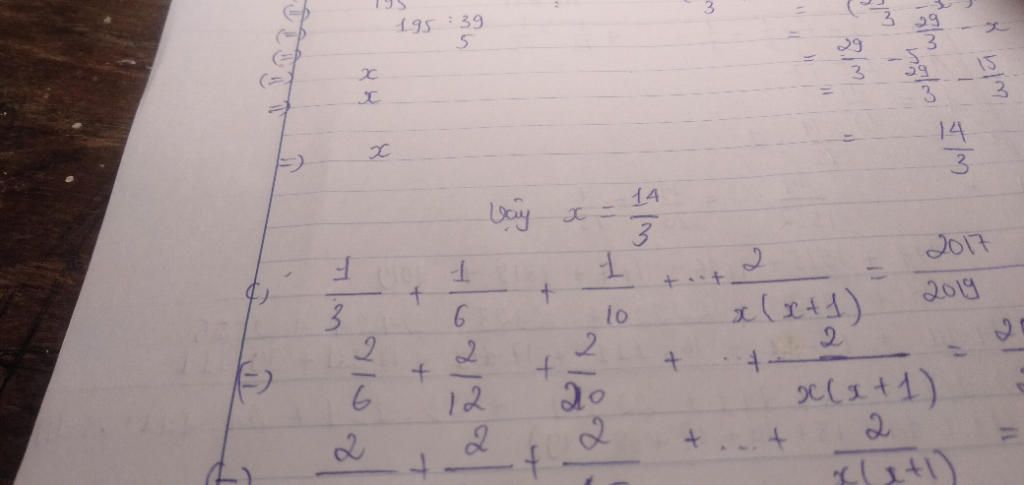 195 : 39 = 29/3 - x
5 = 29/3 - x
x = 29/3 - 5
x = 29/3 - 15/3
=) x = 14/3
Vậy x = 14/3
c) 1/3 + 1/6 + 1/10 + ... + 2/x(x+1) = 2017/2019
(=) 2/6 + 2/12 + 2/20 + ... + 2/x(x+1) =
2 + 2 + 2 + ... + 2/x(x+1) =